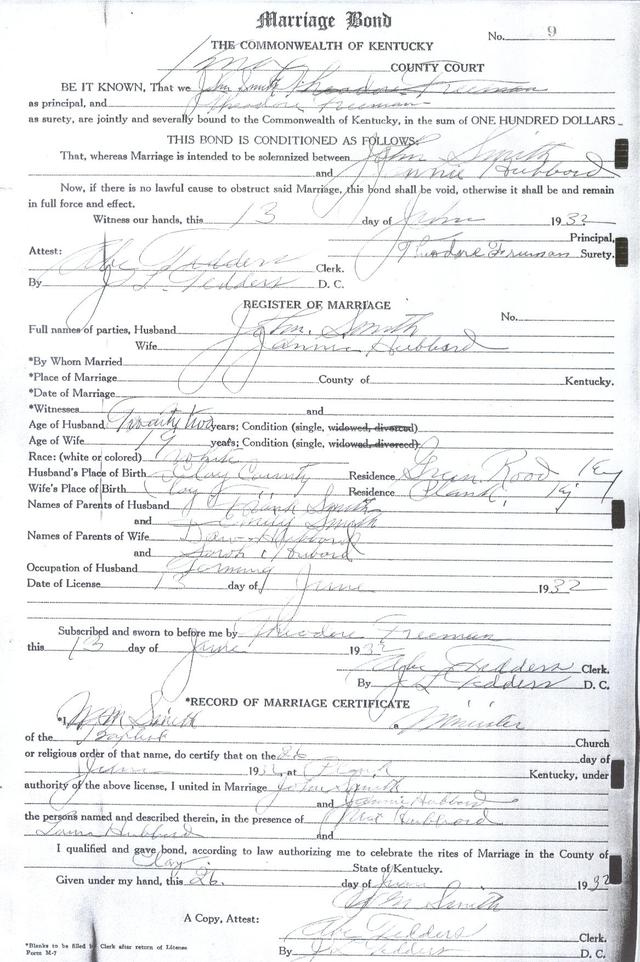 Marriage Bond
No. 9
THE COMMONWEALTH OF KENTUCKY
COUNTY COURT
BE IT KNOWN, That we John Smith Theodore Freeman
as principal, and Theodore Freeman
as surety, are jointly and severally bound to the Commonwealth of Kentucky, in the sum of ONE HUNDRED DOLLARS
THIS BOND IS CONDITIONED AS FOLLOWS:
That, whereas Marriage is intended to be solemnized between John Smith
and Jennie Hubbord
Now, if there is no lawful cause to obstruct said Marriage, this bond shall be void, otherwise it shall be and remain
in full force and effect.
Witness our hands, this 13 day of June 1932
Principal,
Attest: Theodore Freeman Surety.
Abe Tedders Clerk.
By J L Tedders D. C.
REGISTER OF MARRIAGE
No.
Full names of parties, Husband John. Smith
Wife Jannie Hubbard
*By Whom Married
*Place of Marriage County of Kentucky.
*Date of Marriage
*Witnesses and
Age of Husband Twenty two years; Condition (single, widowed, divorced)
Age of Wife 19 years; Condition (single, widowed, divorced)
Race: (white or colored) White
Husband's Place of Birth Clay County Residence Green Rood Ky
Wife's Place of Birth Clay " " Residence Plank, Ky
Names of Parents of Husband Frank Smith
and Emily Smith
Names of Parents of Wife Hibbord
and Sarah Hubord
Occupation of Husband Farming
Date of License 13 day of June 1932
Subscribed and sworn to before me by Theodore Freeman
this 13 day of June 1932
Abe Tedders Clerk.
By J L Tedders D. C.
*RECORD OF MARRIAGE CERTIFICATE
*I, W M Smith a Minister
of the Baptist Church
or religious order of that name, do certify that on the 26 day of
June 1932 at Plank Kentucky, under
authority of the above license, I united in Marriage John Smith
and Jannie Hubbard
the persons named and described therein, in the presence of Hubbrod
Hubbard and
I qualified and gave bond, according to law authorizing me to celebrate the rites of Marriage in the County of
Clay State of Kentucky.
Given under my hand, this 26. day of June 1932
W M Smith
A Copy, Attest:
Abe Tedders Clerk.
By J L Tedders D. C.
*Blanks to be filled by Clerk after return of License
Form M-7